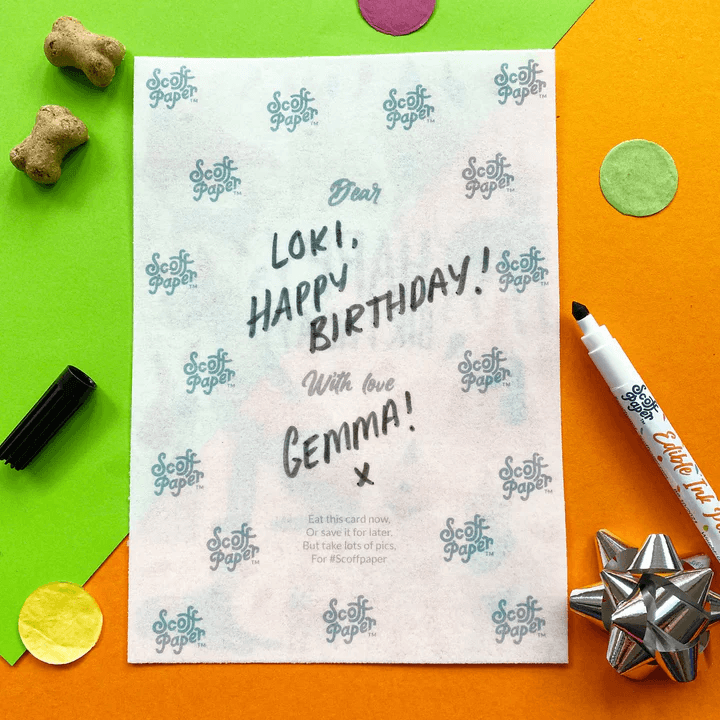 Scoff Paper™
Scoff Paper™
Scoff Paper™
Scoff Paper™
Scoff Paper™
Dear
Scoff Paper™
LOKI,
HAPPY
BIRTHDAY!
Scoff Paper™
Scoff Paper™
Scoff Paper™
With love
Scoff Paper™
GEMMA!
x
Scoff Paper™
Scoff Paper™
Eat this card now,
Or save it for later,
But take lots of pics,
For #Scoffpaper
Scoff Paper™
Scoff Paper™
Scoff Paper™
Scoff Paper™
Scoff Paper™
Scoff Paper
Edible Ink